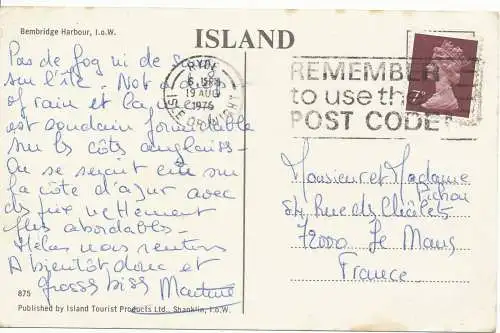 Bembridge Harbour, I.o.W.
ISLAND
RYDE
6 15PM
19 AUG
1975
ISLE OF WIGHT
REMEMBER
to use the
POST CODE
7P
Pas de fog ni de
sur l'île. Not a
of rain et la
est soudain formidable
sur les côts anglaises -
On se serait cru sur
la côte d'azur avec
des prix nettement
plus abordables -
Hélas nous rentrons
A bientôt donc et
grosses biss Martine
Monsieur et Madame
Pichon
84 Rue des Châlets
72000 Le Mans
France
875
Published by Island Tourist Products Ltd., Shanklin, I.o.W.